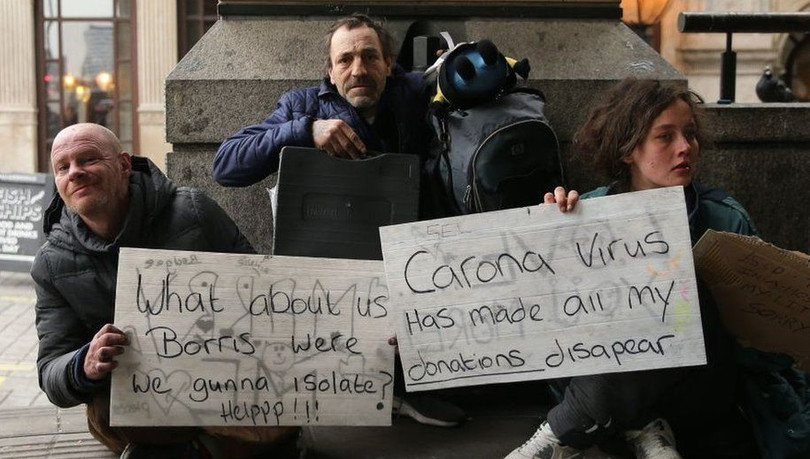 What about us
Borris were
we gunna isolate?
Helppp!!!
Carona Virus
Has made all my
donations disapear